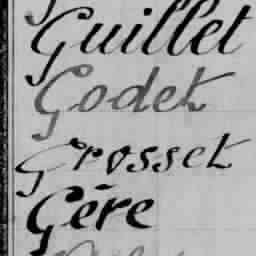 Guillet
Godet
Grosset
Gére